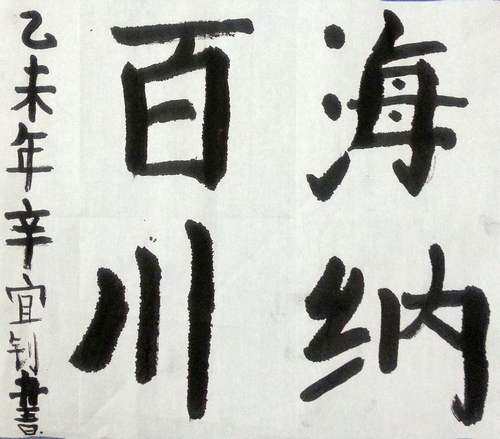 海纳
百川
乙未年辛宜钊書